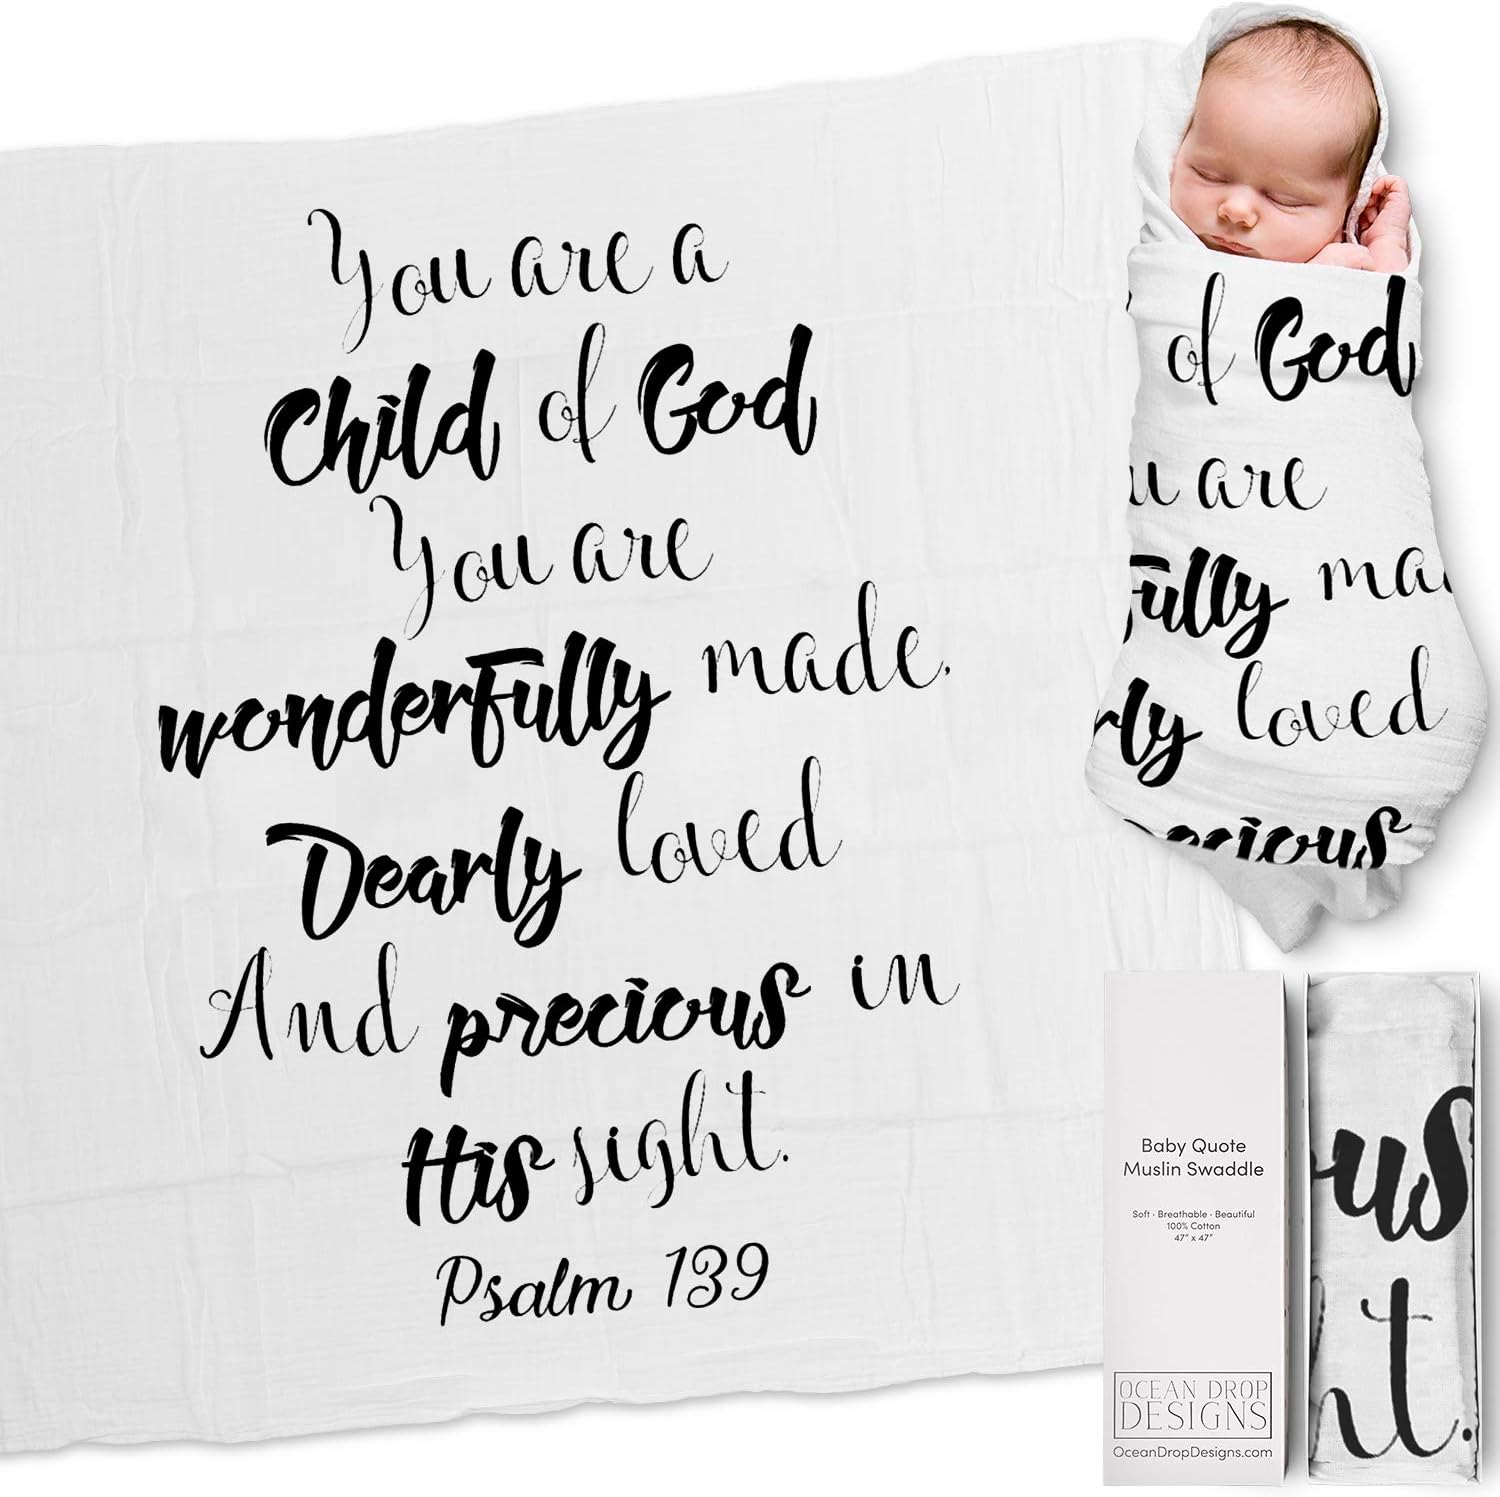 You are a
Child of God
You are
wonderfully made.
Dearly loved
And precious in
His sight.
Psalm 139
of God
are
fully
loved
Baby Quote
Muslin Swaddle
Soft · Breathable · Beautiful
100% Cotton
47" x 47"
OCEAN DROP
DESIGNS
OceanDropDesigns.com